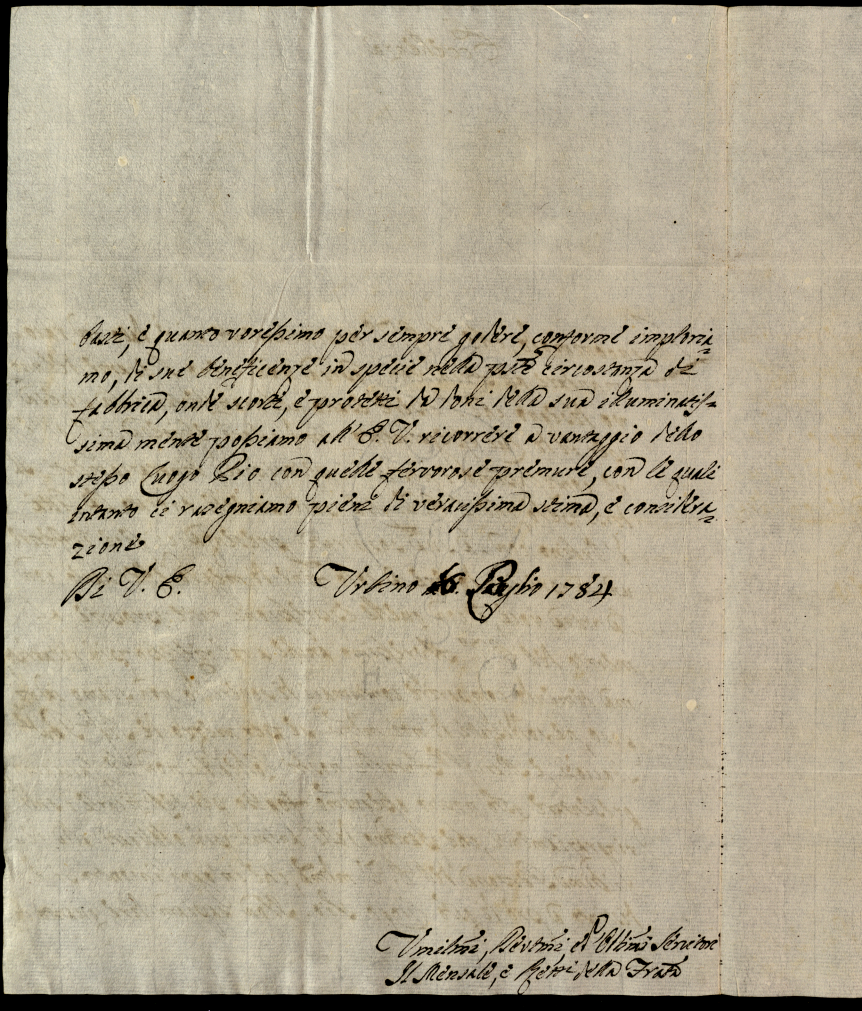 basti, e quanto voressimo per sempre godere, conforme imploria=
mo, di sue beneficenze in specie nella pnte circostanza di
fabbrica, onde scorti, e protetti da doni della sua illuminatis=
sima mente possiamo all' E. V. ricorrere a vantaggio dello
stesso Luogo Pio con quelle fervorose premure, con le quali
intanto ci rasegniamo pieni di veracissima stima, e considera=
zione
Di V. E. Urbino 6. Luglio 1784
Umilmi, Devmi, ed Obbmi Servitori
Il Mensale, e Retti della Fratta